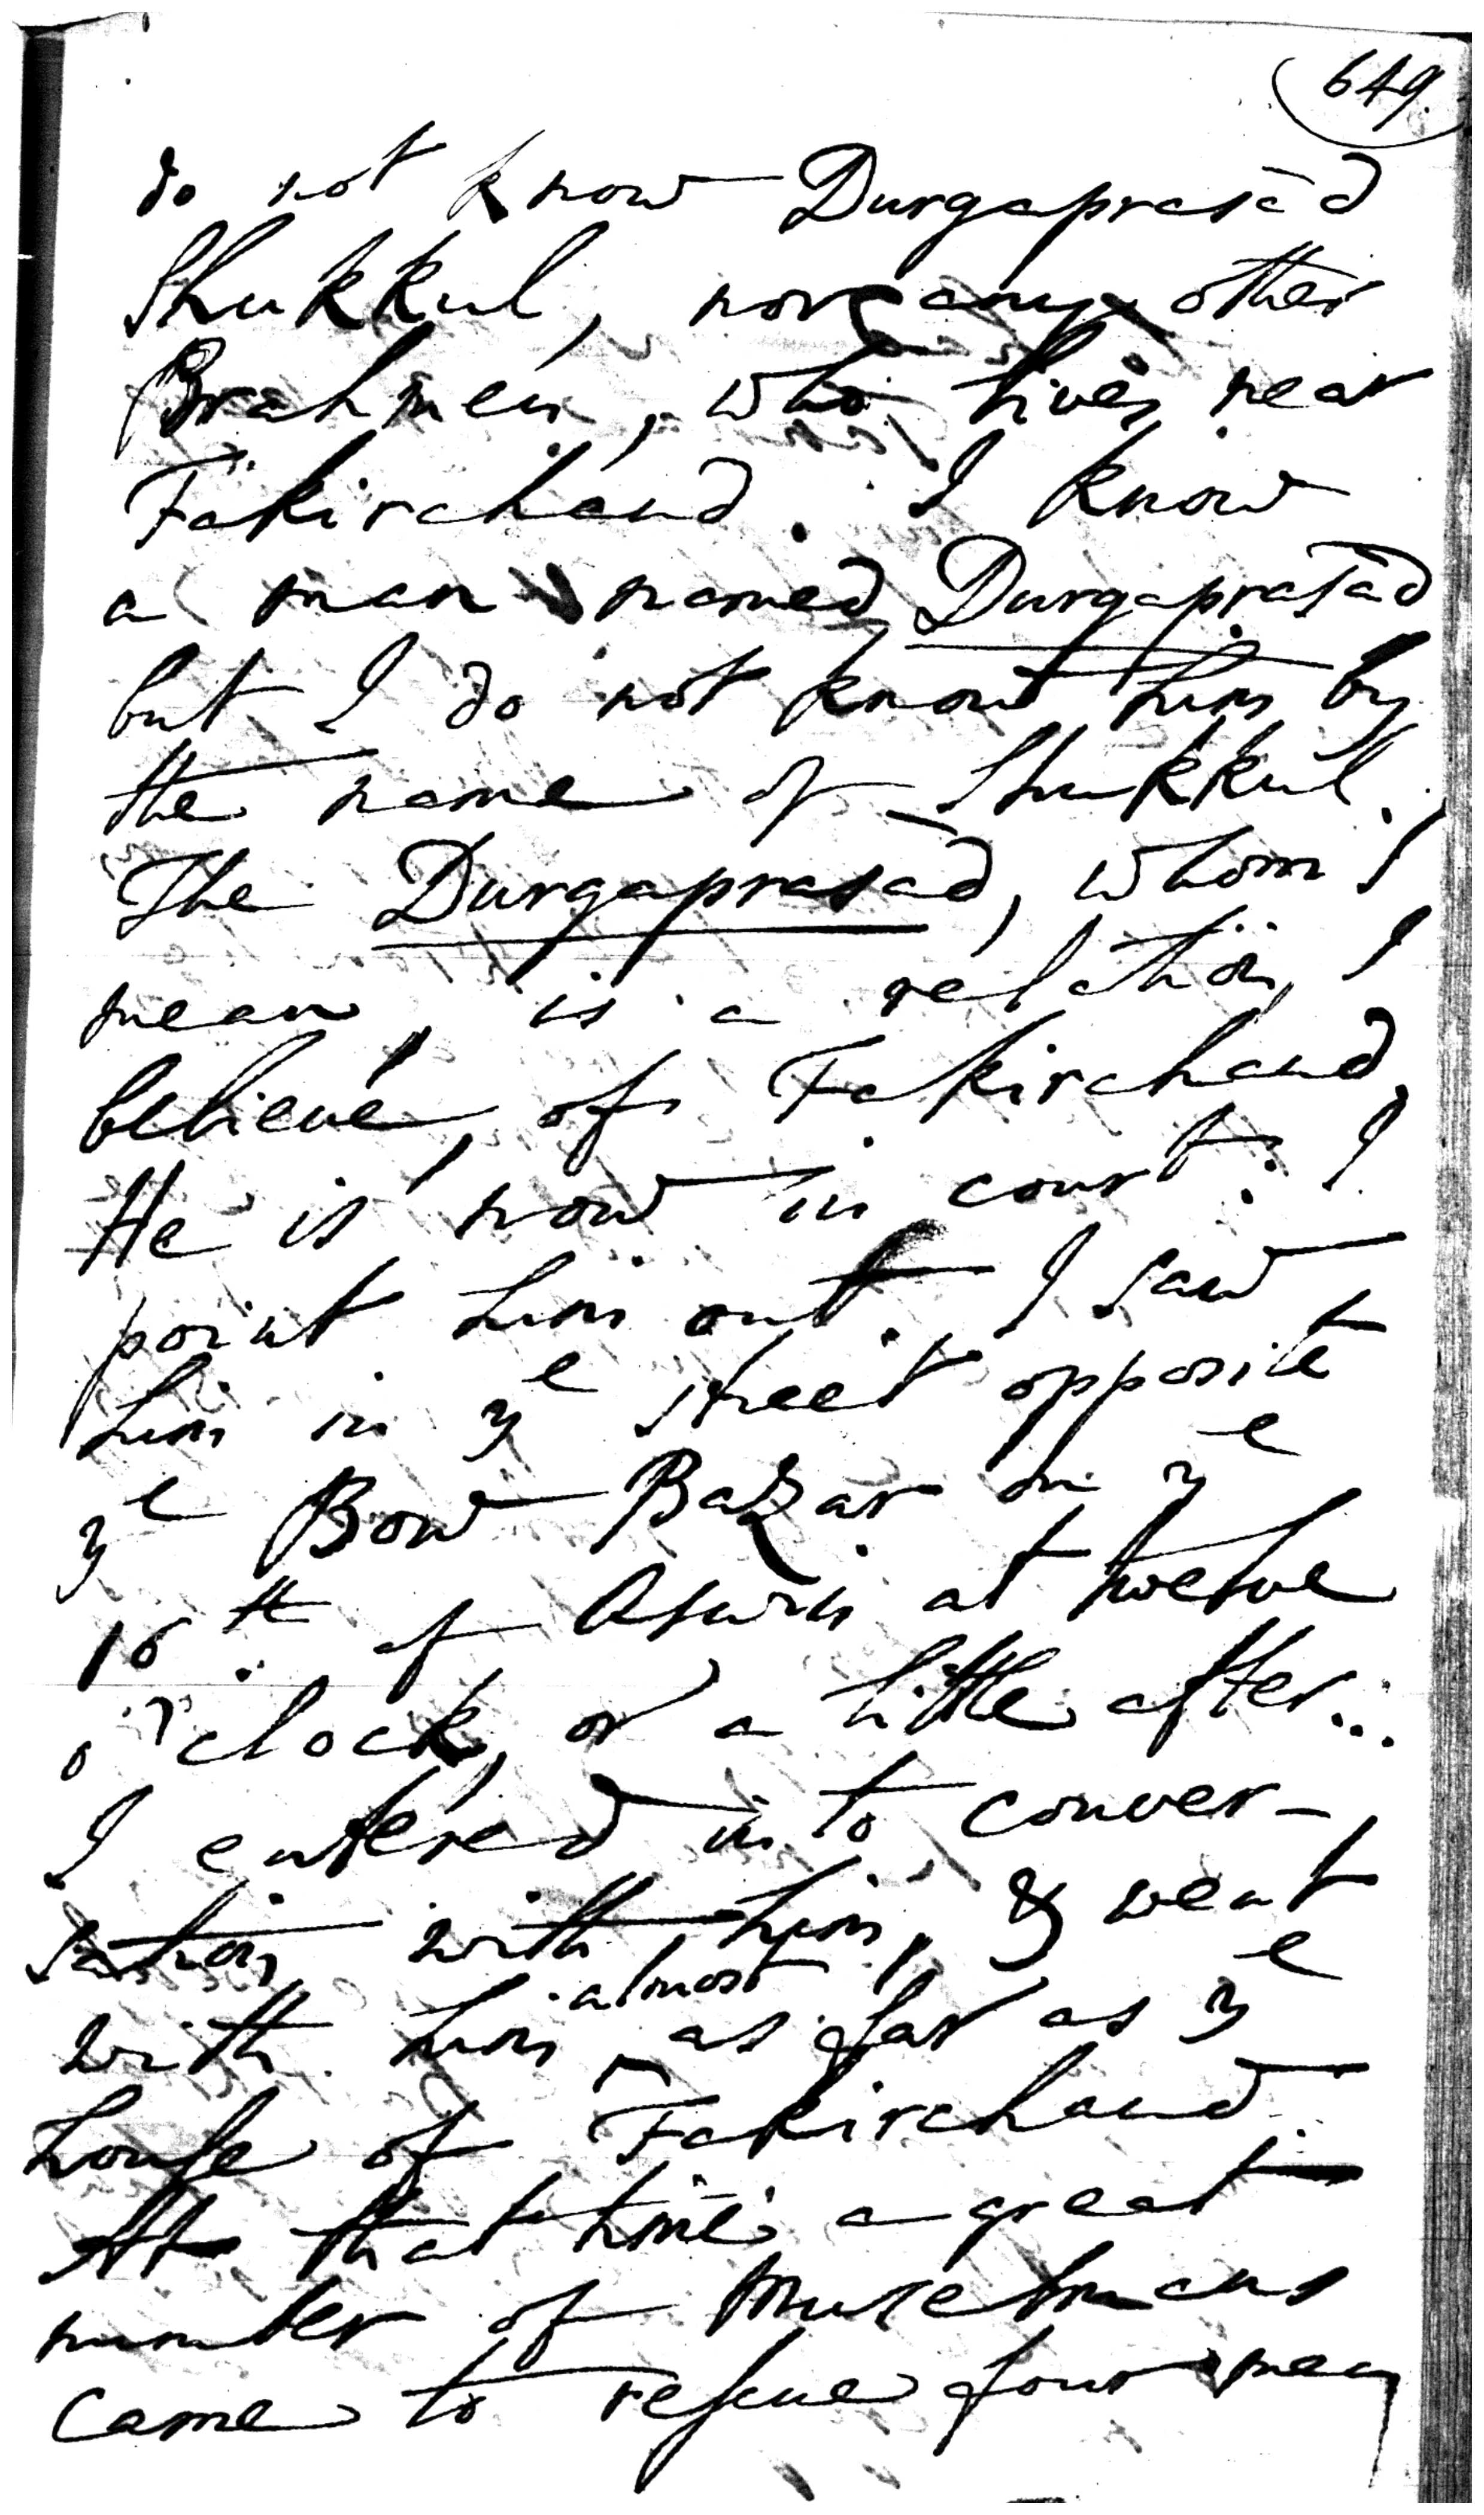 649.
do not know Durgaprasād
Shukkul, nor any other
Brahmen, who lives near
Fakirchand. I know
a man named Durgaprasād
but I do not know him by
the name of Shukkul.
The Durgaprasād, whom I
mean, is a relation, I
believe, of Fakirchand,
He is now in court: I
point him out. I saw
him in yᵉ street opposite
yᵉ Bow Bazar on yᵉ
16th. of Aswin at twelve
o'clock, or a little after...
I entered into conver-
sation with him, & went
with him almost as far as yᵉ
house of Fakirchand
At that time a great
number of Muselmans
came to rescue four men